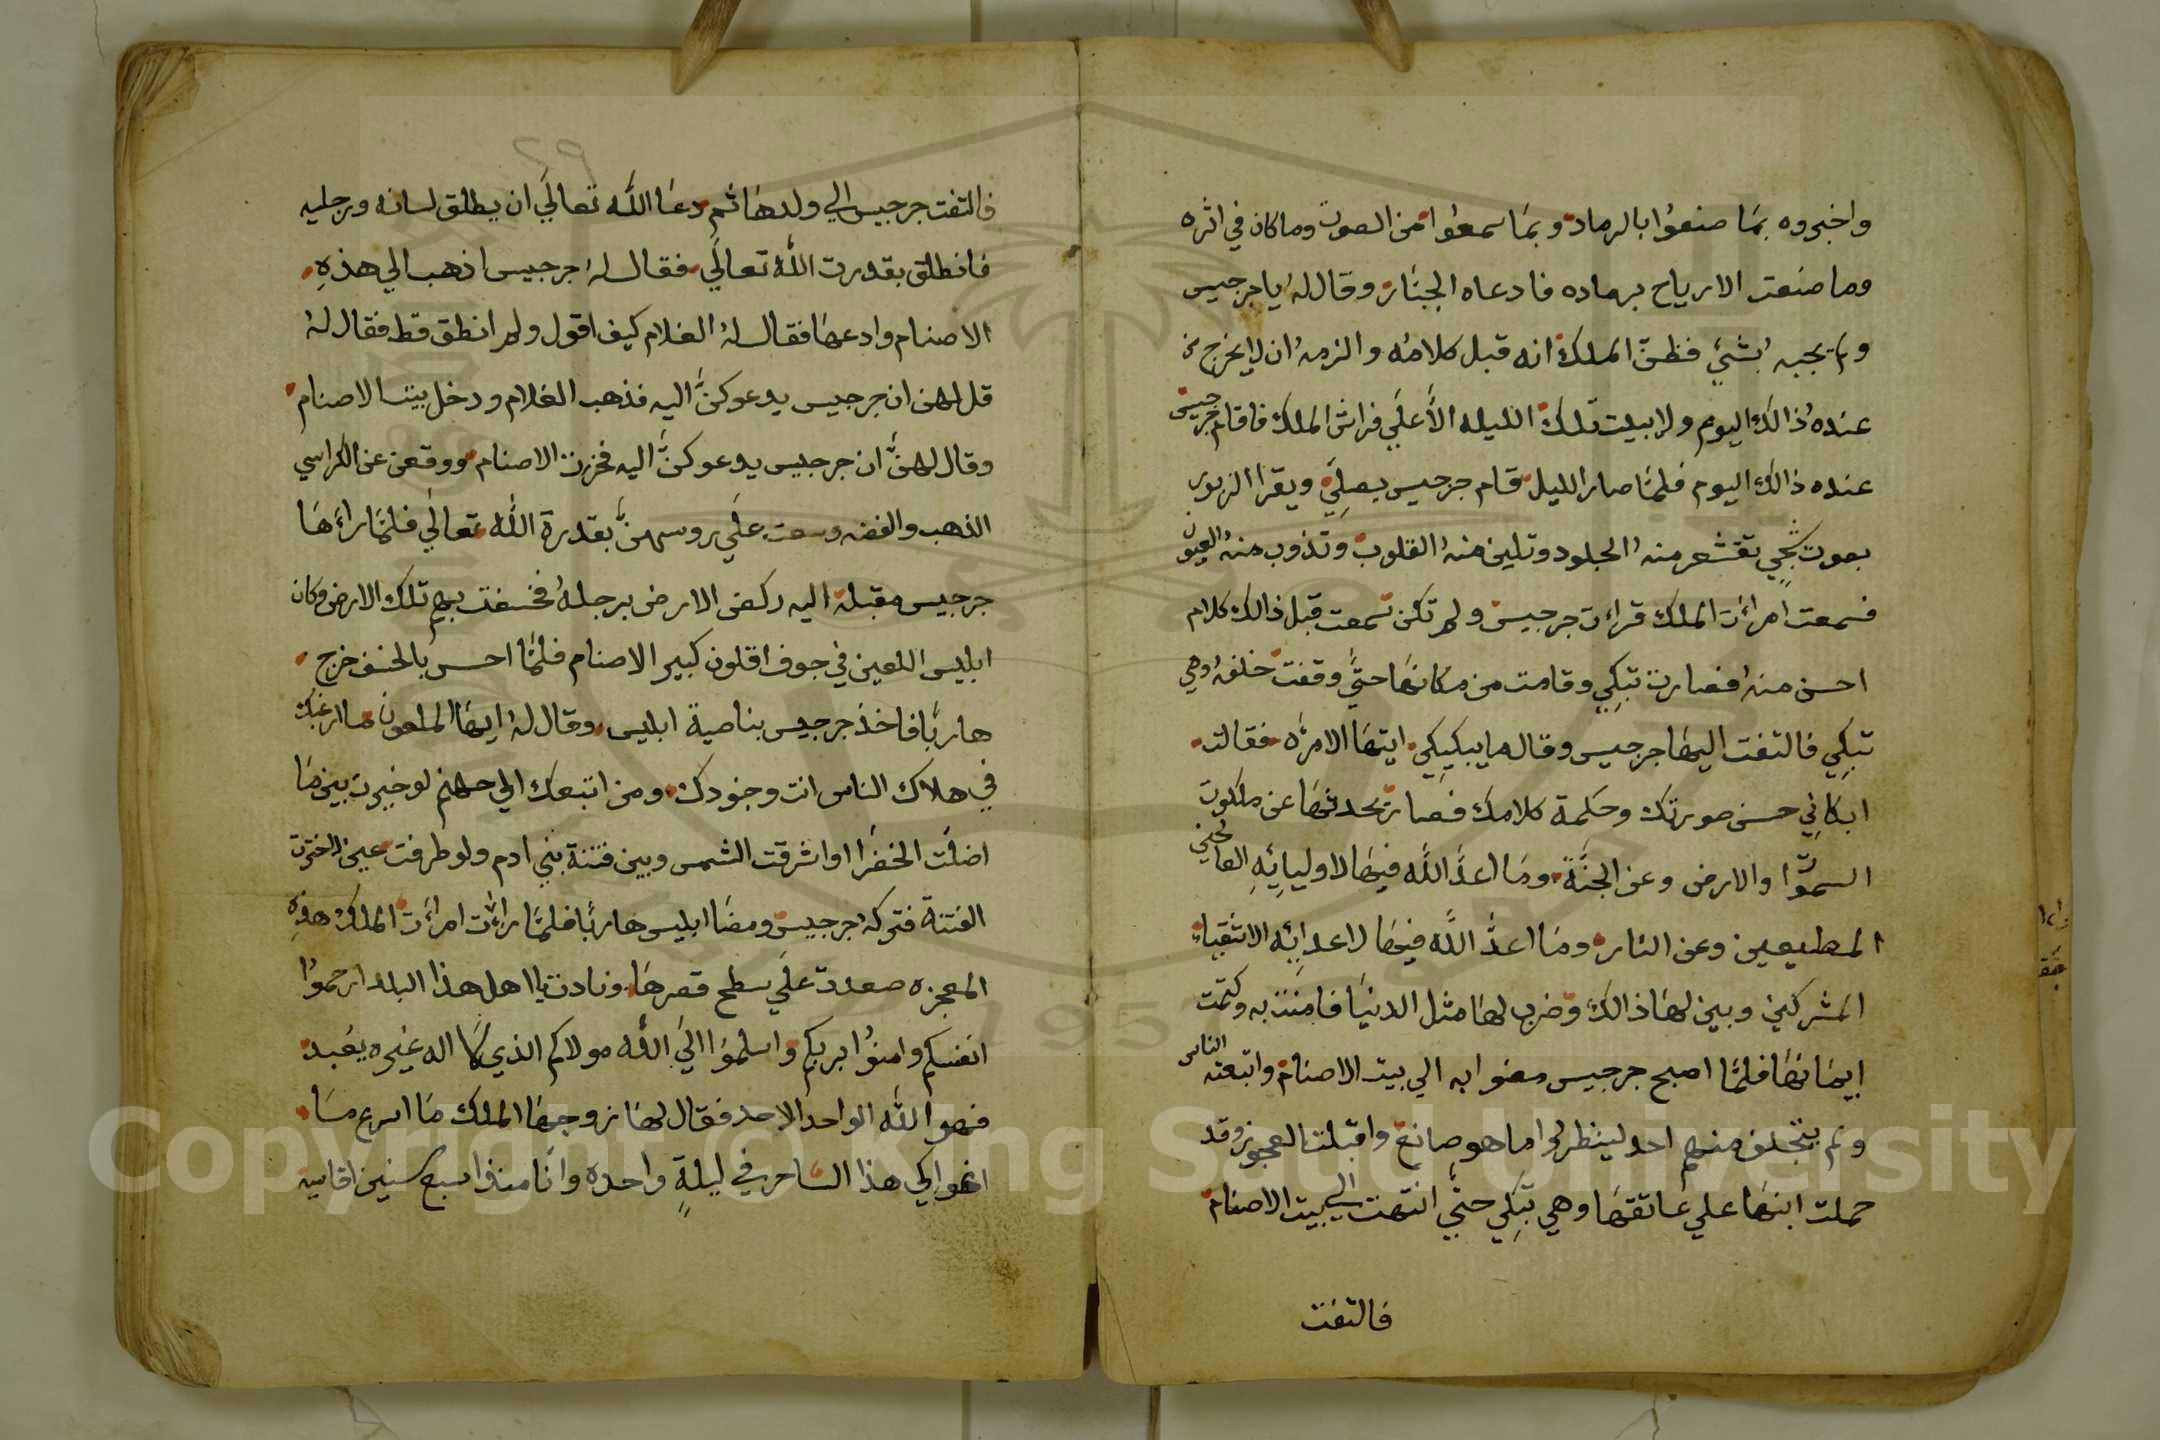 واخبروه بما صنعوا بالرماد وبما سمعوا من الصوت وما كان في اثره
وما صنعت الارياح برماده فادعاه الجبار وقال له يا جرجيس
ولم يجبه بشئ فظن الملك انه قبل كلامه والزمه ان لا يخرج من
عنده ذالك اليوم ولا يبيت تلك الليله الا علي فراش الملك فاقام جرجيس
عنده ذالك اليوم فلما صار الليل قام جرجيس يصلي ويقرا الزبور
بصوت شجي تقشعر منه الجلود وتلين منه القلوب وتذوب منه العيون
فسمعت امراءت الملك قراءت جرجيس ولم تكن سمعت قبل ذالك كلام
احسن منه فصارت تبكي وقامت من مكانها حتى وقفت خلفه وهي
تبكي فالتفت اليها جرجيس وقال ما يبكيكي ايتها الامرأه فقالت
ابكاني حسن صورتك وحكمة كلامك فصار يحدثها عن ملكوت
السموا والارض وعن الجنة وما اعد الله فيها لاوليايه الصالحين
المطيعين وعن النار وما اعد الله فيها لاعدايه الاشقياء
المشركين وبين لها ذالك وضرب لها مثل الدنيا فامنت به وكتمت
ايمانها فلما اصبح جرجيس مضوا به الي بيت الاصنام واتبعته الناس
ولم يتخلف منهم احد لينظروا ما هو صانع واقبلت العجوز وقد
حملت ابنها علي عاتقها وهي تبكي حتي انتهت الي بيت الاصنام
فالتفت
فالتفت جرجيس الي ولدها ثم دعا الله تعالي ان يطلق لسانه ورجليه
فانطلق بقدرت الله تعالي فقال له جرجيس اذهب الي هذه
الاصنام وادعها فقال له الغلام كيف اقول ولم انطق قط فقال له
قل لهن ان جرجيس يدعوكن اليه فذهب الغلام ودخل بيت الاصنام
وقال لهن ان جرجيس يدعوكن اليه فخرت الاصنام ووقعن عن الكراسي
الذهب والفضه وسعت علي روسهن بقدرة الله تعالي فلما راءها
جرجيس مقبلة اليه ركض الارض برجله فخسفت بهم تلك الارض وكان
ابليس اللعين في جوف افلون كبير الاصنام فلما احس بالخسف خرج
هاربا فاخذ جرجيس بناصية ابليس وقال له ايها الملعون ما ارغبك
في هلاك الناس انت وجنودك ومن اتبعك الي جهنم لو خيرت بين ما
اضلت الخضرا او اشرقت الشمس وبين فتنة بني ادم ولو طرفت عين لاخترت
الفتنة فتركه جرجيس ومضا ابليس هاربا فلما راءت امراءت الملك هذه
المعجزه صعدت علي سطح قصرها ونادت يا اهل هذا البلد ارحموا
انفسكم وامنوا بربكم واسلموا الي الله مولاكم الذي لا اله غيره يعبد
فهو الله الواحد الاحد فقال لها زوجها الملك ما اسرع ما
اغواكي هذا الساحر في ليلة واحده وانا منذ سبع سنين اقاسيه